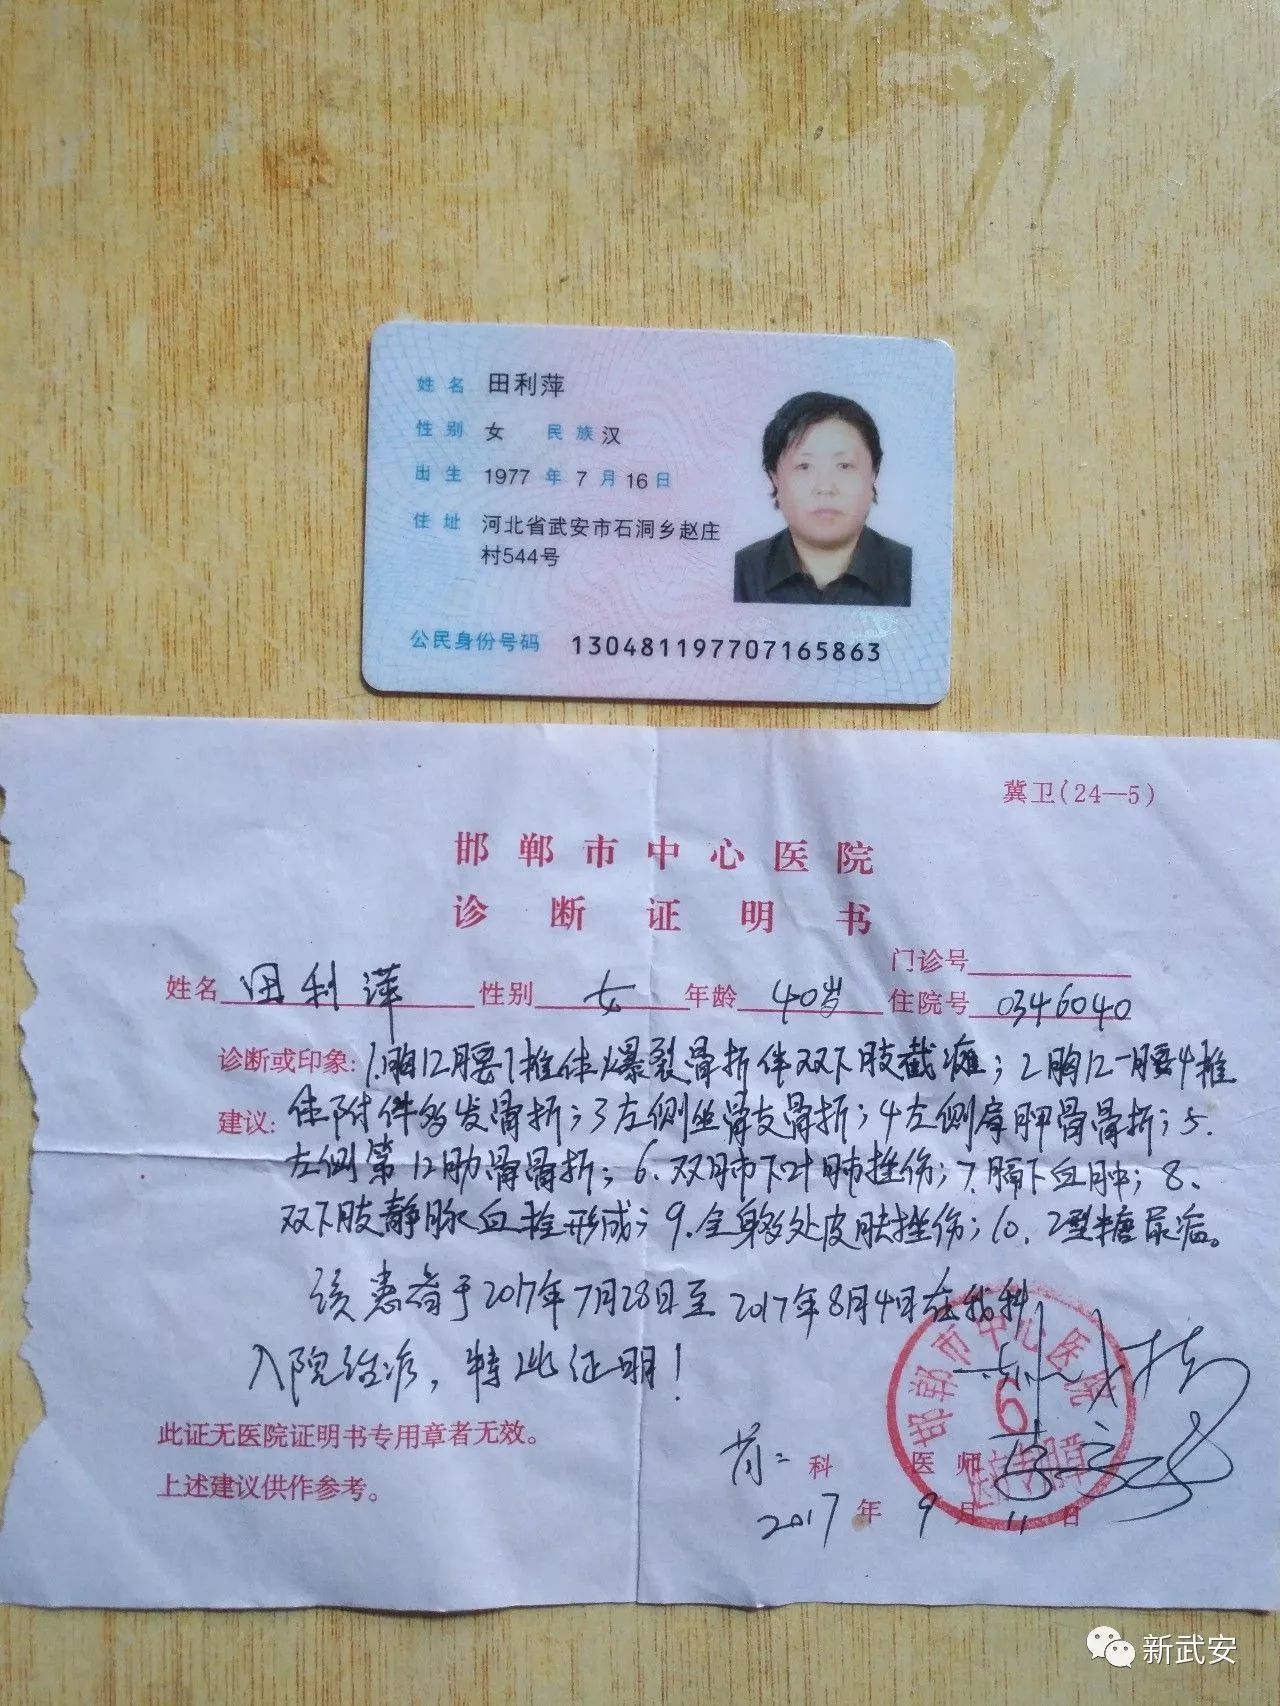 姓名 田利萍
性别 女 民族 汉
出生 1977 年 7 月 16 日
住址 河北省武安市石洞乡赵庄
村544号
公民身份号码 130481197707165863
冀卫(24—5)
邯郸市中心医院
诊断证明书
门诊号
姓名 田利萍 性别 女 年龄 40岁 住院号 0346040
诊断或印象: 1.胸12腰1椎体爆裂骨折伴双下肢截瘫；2胸12-腰4椎
建议: 体附件多发骨折；3左侧坐骨支骨折；4左侧肩胛骨骨折；5.
左侧第12肋骨骨折；6、双肺下叶肺挫伤；7.膈下血肿；8、
双下肢静脉血栓形成；9.全身多处皮肤挫伤；10、2型糖尿病。
该患者于2017年7月28日至2017年8月4日在我科
入院治疗，特此证明！
邯郸市中心医院
6
此证无医院证明书专用章者无效。
上述建议供作参考。
科 医师
2017 年 9 月 11 日
新武安